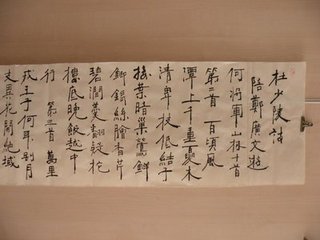 杜少陵詩
陪鄭廣文遊
何將軍山林十首
第二首 百頃風
潭上千重夏木
清卑枝低結子
接葉暗巢鶯鮮
鯽銀絲膾香芹
碧澗羹翻疑柁
樓底晚飯越中
行 第三首 萬里
戎王子何年別月
支異花開絕域